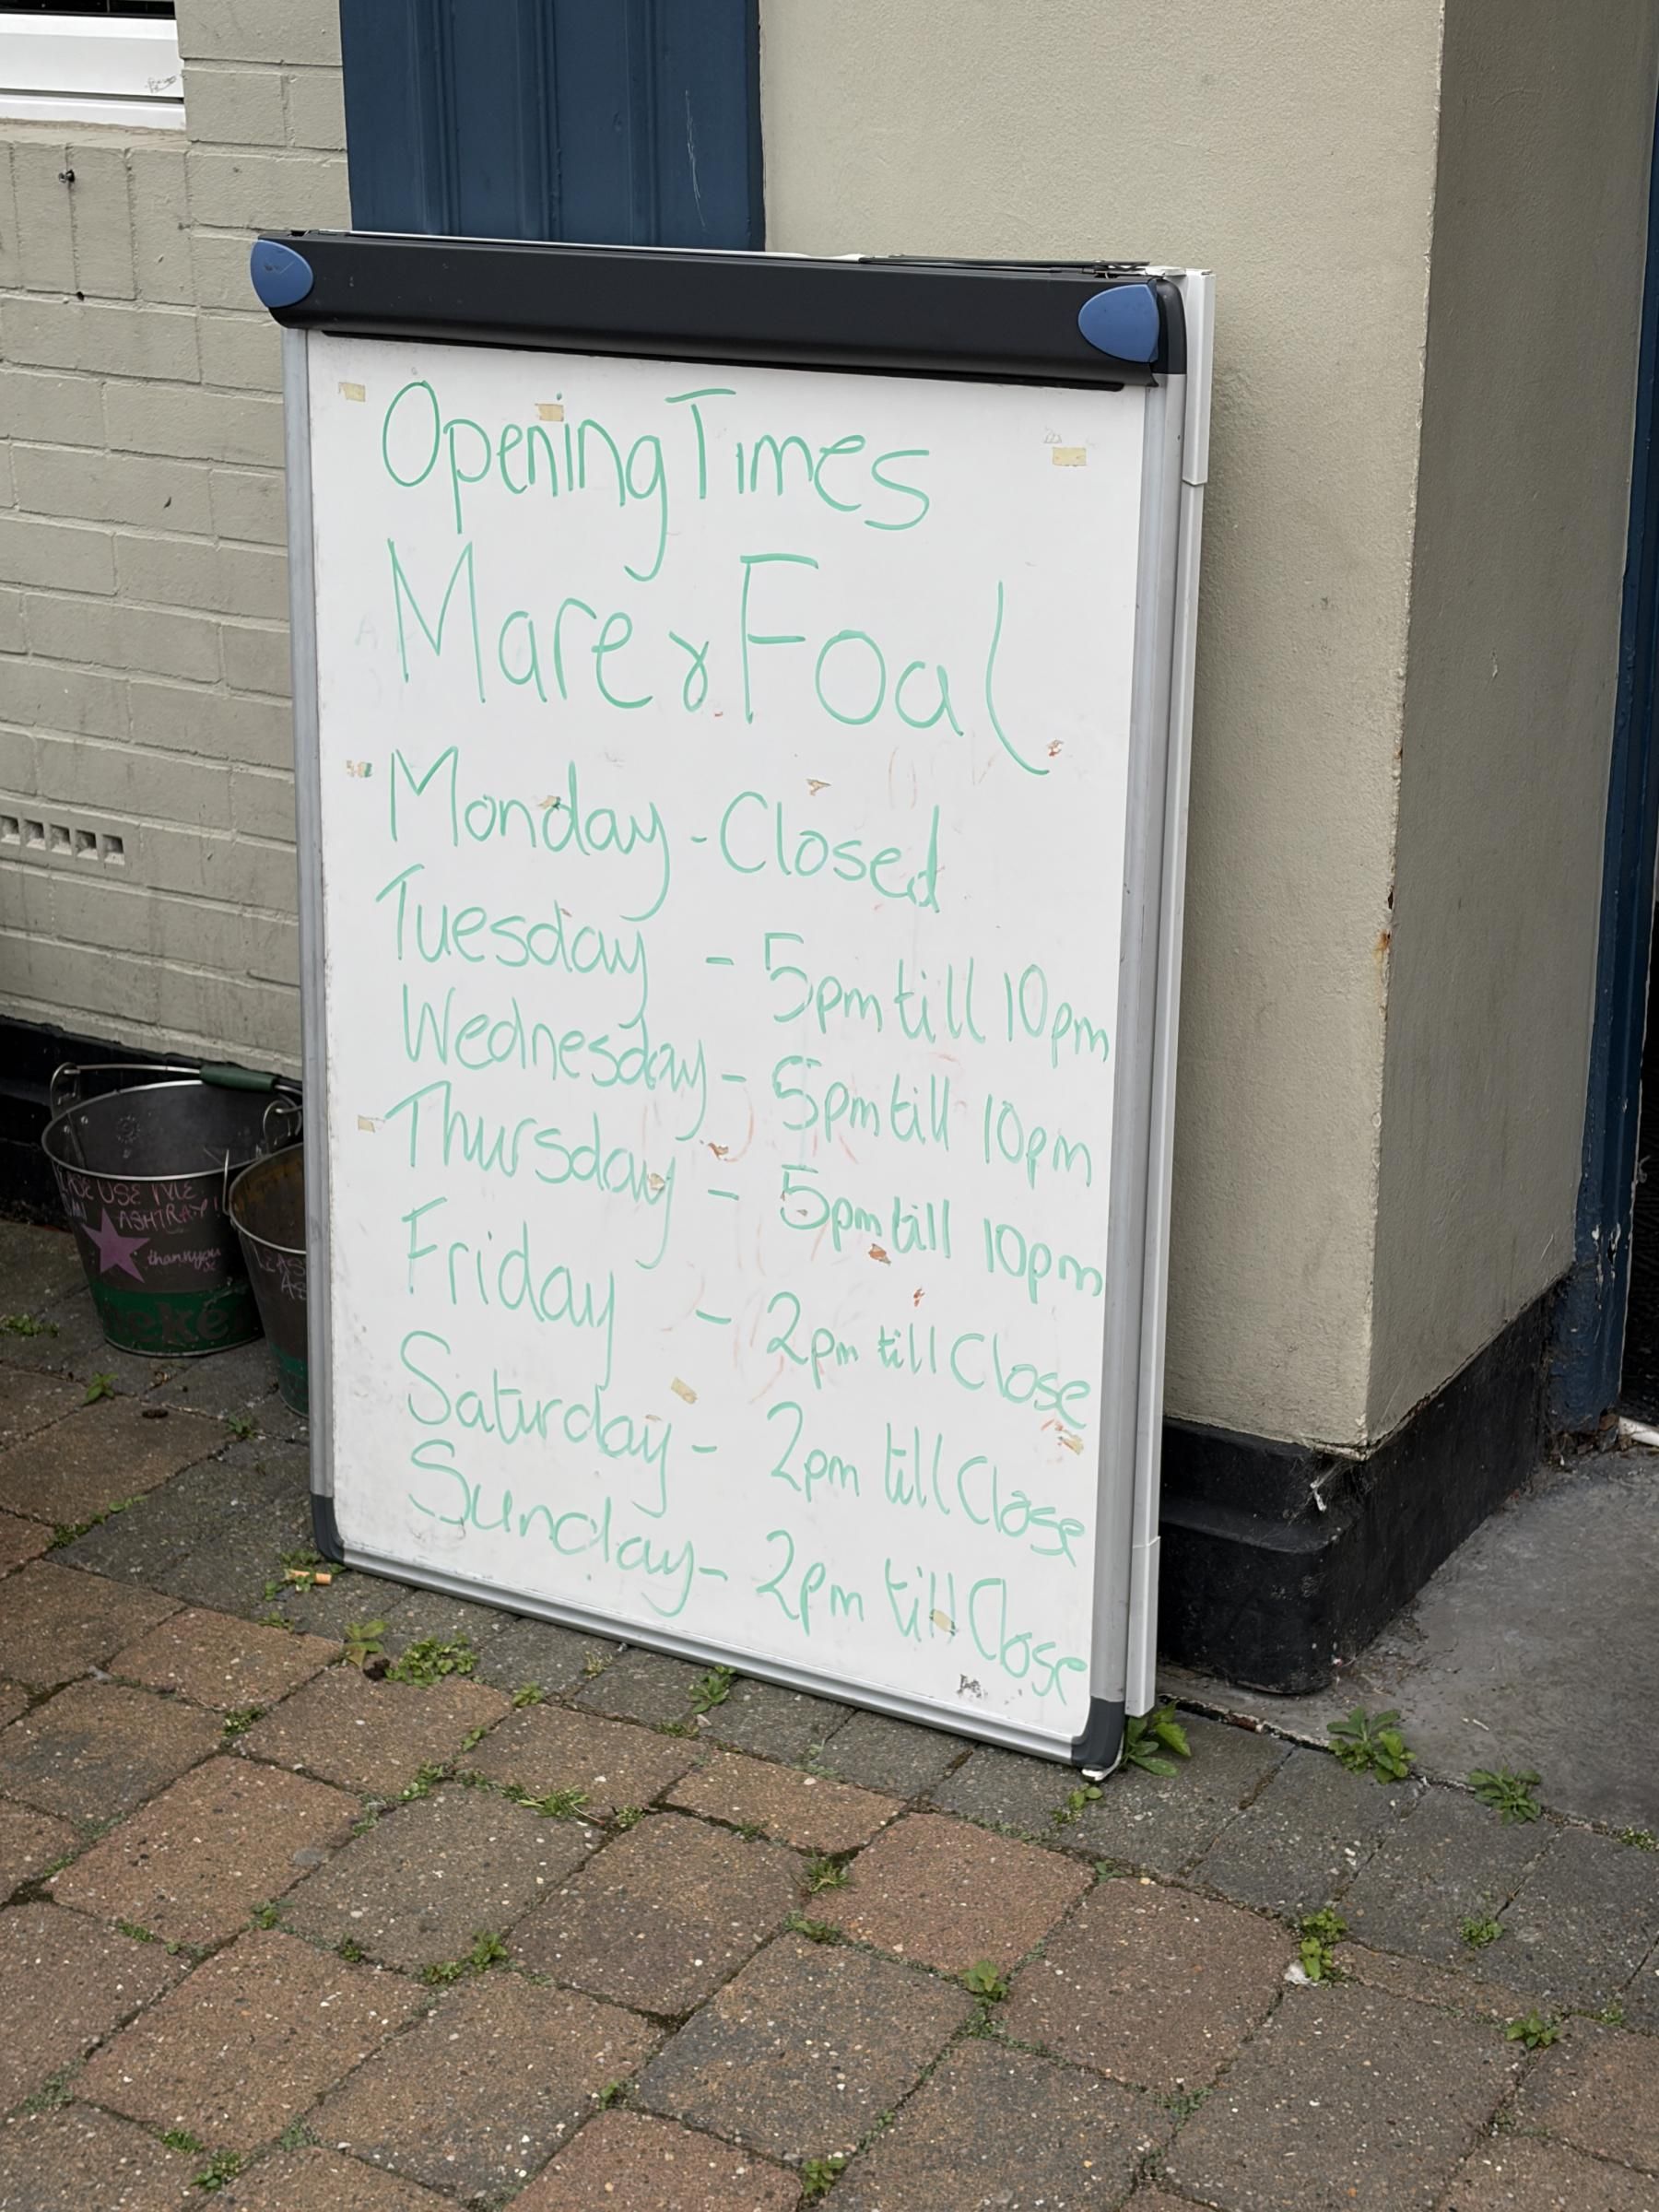 Opening Times
Mare & Foal
Monday - Closed
Tuesday - 5pm till 10pm
Wednesday - 5pm till 10pm
Thursday - 5pm till 10pm
Friday - 2pm till Close
Saturday - 2pm till Close
Sunday - 2pm till Close
USE
ASHTRAY!
thankyou